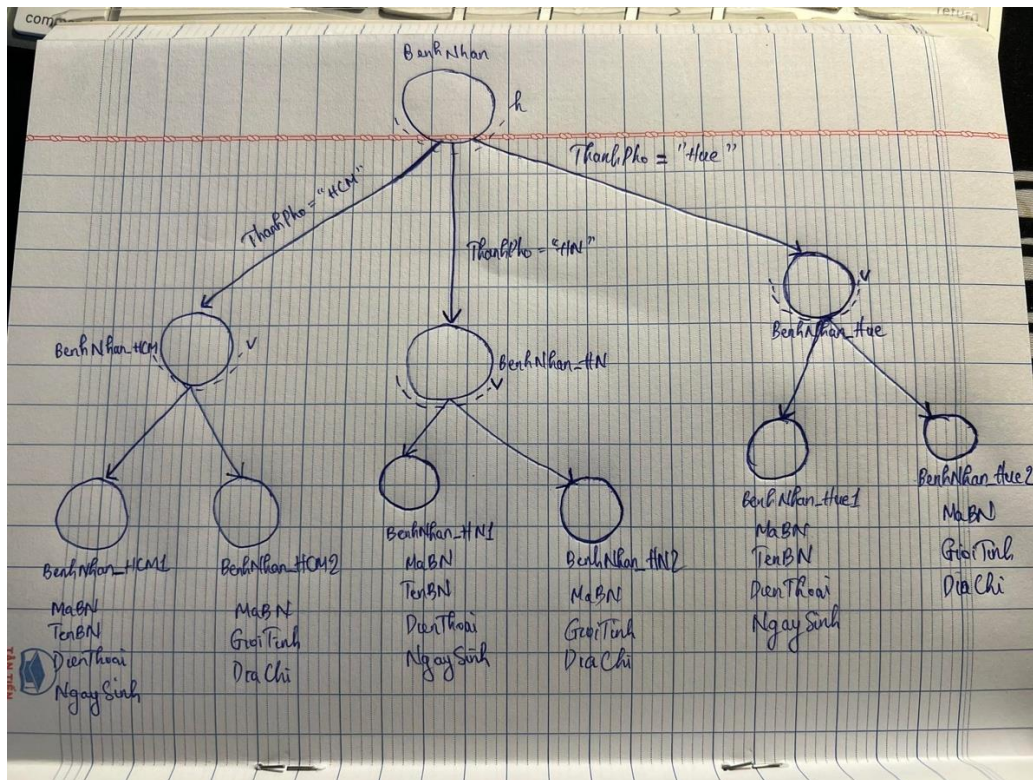 comm
return
BenhNhan
h
ThanhPho = "HCM"
ThanhPho = "HN"
ThanhPho = "Hue"
BenhNhan_HCM
v
BenhNhan_HN
v
BenhNhan_Hue
v
BenhNhan_HCM1
MaBN
TenBN
DienThoai
NgaySinh
BenhNhan_HCM2
MaBN
GioiTinh
DiaChi
BenhNhan_HN1
MaBN
TenBN
DienThoai
NgaySinh
BenhNhan_HN2
MaBN
GioiTinh
DiaChi
BenhNhan_Hue1
MaBN
TenBN
DienThoai
NgaySinh
BenhNhan_Hue2
MaBN
GioiTinh
DiaChi
TÂN TIẾN